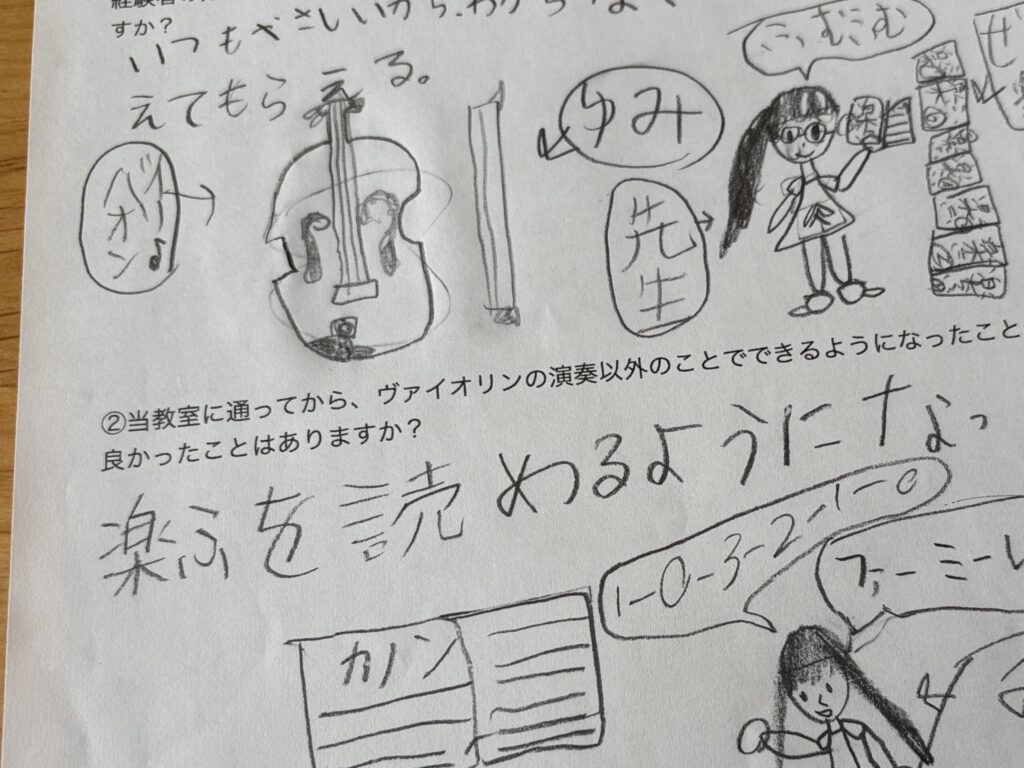 すか?
いつもやさしいから、わからなく
えてもらえる。
バイオリン♪
ゆみ
先生
ふむふむ
②当教室に通ってから、ヴァイオリンの演奏以外のことでできるようになったこと
良かったことはありますか?
楽ふを読めるようになっ
1-0-3-2-1-0
ファーミーレ
カノン